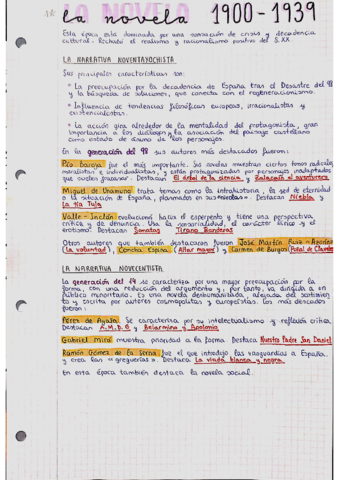 LA NOVELA
la novela 1900-1939
Esta época está dominada por una sensación de crisis y decadencia
cultural. Rechazó el realismo y racionalismo positivo del S.XX
LA NARRATIVA NOVENTAYOCHISTA
Sus principales características son:
* La preocupación por la decadencia de España tras el Desastre del 98
y la búsqueda de soluciones, que conecta con el regeneracionismo.
* Influencia de tendencias filosóficas europeas, irracionalistas y
existencialistas.
* La acción gira alrededor de la mentalidad del protagonista, gran
importancia a los diálogos y la asociación del paisaje castellano
como estado de ánimo de los personajes
En la generación del 98 sus autores más destacados fueron:
Pío Baroja fue el más importante. Sus novelas muestran ciertos temas radicales,
moralistas e individualistas, y están protagonizadas por personajes inadaptados
que suelen fracasar. Destacan El árbol de la ciencia y Zalacaín el aventurero
Miguel de Unamuno trata temas como la intrahistoria, la sed de eternidad
o la situación de España, plasmados en sus «nivolas». Destacan Niebla y
La tía Tula
Valle-Inclán evolucionó hacia el esperpento y tiene una perspectiva
crítica y de denuncia. Usa la sonoridad, el carácter lírico y el
erotismo. Destacan Sonatas Tirano Banderas
Otros autores que también destacaron fueron José Martín Ruiz - Azorín
(La voluntad), Concha Espina (Altar mayor) y Carmen de Burgos (Puñal de Claveles)
LA NARRATIVA NOVECENTISTA
La generación del 14 se caracteriza por una mayor preocupación por la
forma, con una reducción del argumento y, por tanto, va dirigida a un
público minoritario. Es una novela deshumanizada, alejada del sentimiento
y escrita por autores cosmopolitas y europeístas. Los más destacados
fueron:
Pérez de Ayala. Se caracteriza por su intelectualismo y reflexión crítica.
Destacan A.M.D.G y Belarmino y Apolonio
Gabriel Miró muestra prioridad a la forma. Destaca Nuestro Padre San Daniel
Ramón Gómez de la Serna fue el que introdujo las vanguardias a España
y crea las «greguerías». Destaca La viuda blanca y negra
En esta época también destaca la novela social.